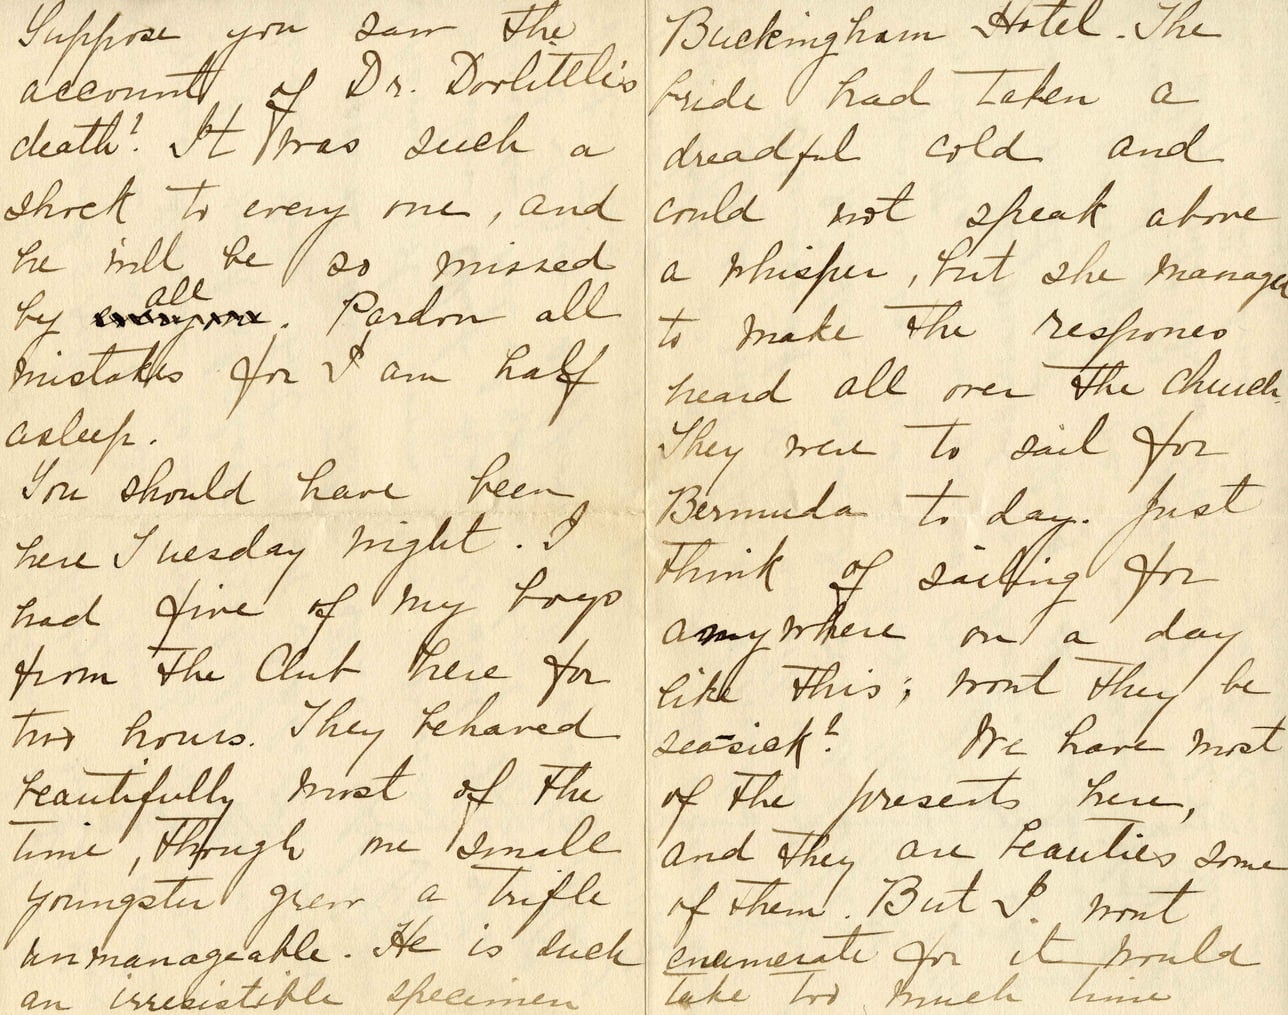 Suppose you saw the
account of Dr. Dorlittle's
death? It was such a
shock to every one, and
he will be so missed
by all. Pardon all
mistakes for I am half
asleep.
You should have been
here Tuesday night. I
had five of my boys
from the Club here for
two hours. They behaved
beautifully most of the
time, though one small
youngster grew a trifle
unmanageable. He is such
an irresistible specimen
Buckingham Hotel. The
bride had taken a
dreadful cold and
could not speak above
a whisper, but she managed
to make the respones
heard all over the church.
They were to sail for
Bermuda to day. Just
think of sailing for
anywhere on a day
like this; wont they be
sea-sick? We have most
of the presents here,
and they are beauties some
of them. But I. wont
enumerate for it would
take too much time